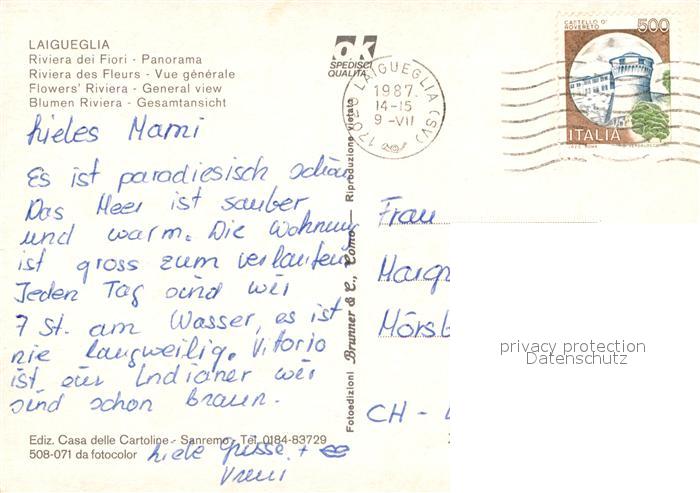 LAIGUEGLIA
Riviera dei Fiori - Panorama
Riviera des Fleurs - Vue générale
Flowers' Riviera - General view
Blumen Riviera - Gesamtansicht
ok
SPEDISCI
QUALITÀ
LAIGUEGLIA (SV)
1987
14-15
9-VII
CASTELLO DI
ROVERETO
500
ITALIA
liebes Mami
Es ist paradiesisch schön
Das Meer ist sauber
und warm. Die Wohnung
ist gross zum verlaufen
Jeden Tag sind wir
7 St. am Wasser, es ist
nie langweilig. Vitorio
ist ein Indianer wir
sind schon braun.
liebe Grüsse +
Vreni
Ediz. Casa delle Cartoline - Sanremo - Tel. 0184-83729
508-071 da fotocolor
Fotoedizioni Brunner & C., Como — Riproduzione vietata
Frau
Mörsb
CH -
privacy protection
Datenschutz